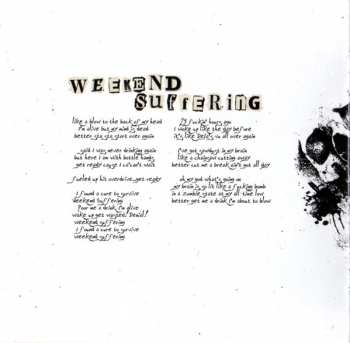 WEEKEND
SUFFERING
like a blow to the back of my head
I'm alive but my mind is dead
better gta gta start over again
said I was never drinking again
but here I am with bottle hands
get ready cause I can't wait
fueled up his overdrive get ready
I found a cure to survive
weekend suffering
Pour me a drink, I'm alive
wake up get wasted! Denial!
weekend suffering
I found a cure to survive
weekend suffering
I wake up like the day before
it's like all over again
I've got cowboys in my brain
like a chainsaw cutting over
better cut me a break ain't got all day
oh my god what's going on
my brain is split like a fucking bomb
in a zombie state at all time low
better get me a drink I'm about to blow